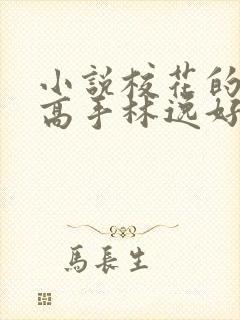 小說校花的
高手林逸好
馬長生